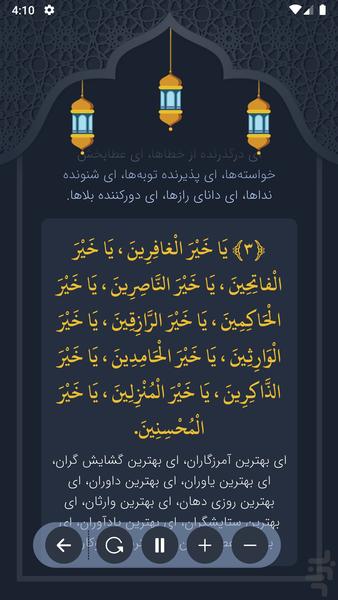 4:10
ای درگذرنده از خطاها، ای عطابخش
خواسته‌ها، ای پذیرنده توبه‌ها، ای شنونده
نداها، ای دانای رازها، ای دورکننده بلاها.
﴿٣﴾ يَا خَيْرَ الْغافِرِينَ ، يَا خَيْرَ
الْفاتِحِينَ ، يَا خَيْرَ النَّاصِرِينَ ، يَا خَيْرَ
الْحَاكِمِينَ ، يَا خَيْرَ الرَّازِقِينَ ، يَا خَيْرَ
الْوَارِثِينَ ، يَا خَيْرَ الْحَامِدِينَ ، يَا خَيْرَ
الذَّاكِرِينَ ، يَا خَيْرَ الْمُنْزِلِينَ ، يَا خَيْرَ
الْمُحْسِنِينَ.
ای بهترین آمرزگاران، ای بهترین گشایش گران،
ای بهترین یاوران، ای بهترین داوران، ای
بهترین روزی دهان، ای بهترین وارثان، ای
بهترین ستایشگران، ای بهترین یادآوران، ای